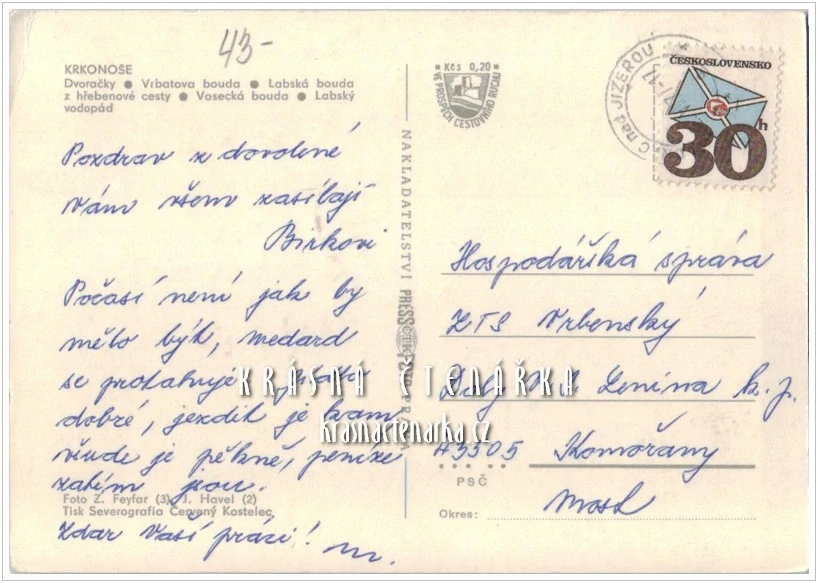 43-
KRKONOŠE
Dvoračky ● Vrbatova bouda ● Labská bouda
z hřebenové cesty ● Vosecká bouda ● Labský
vodopád
Pozdrav z dovolené
Vám všem zasílají
Birkovi
Počasí není jak by
mělo být, medard
se protahuje
dobré, jezdit je kam
všude je pěkně, peníze
zatím jsou.
Foto Z. Feyfar (3), J. Havel (2)
Tisk Severografia Červený Kostelec
Zdar Vaší práci!
m.
Kčs 0,20
VE PROSPĚCH CESTOVNÍHO RUCHU
NAKLADATELSTVÍ PRESSFOTO PRAHA
nad JIZEROU
ČESKOSLOVENSKO
30h
Hospodářská správa
ZTS Vrbenský
Doly V.I. Lenina k.p.
43505 Komořany
PSČ
Most
Okres:
KRÁSNÁ ČTENÁŘKA
krasnactenarka.cz